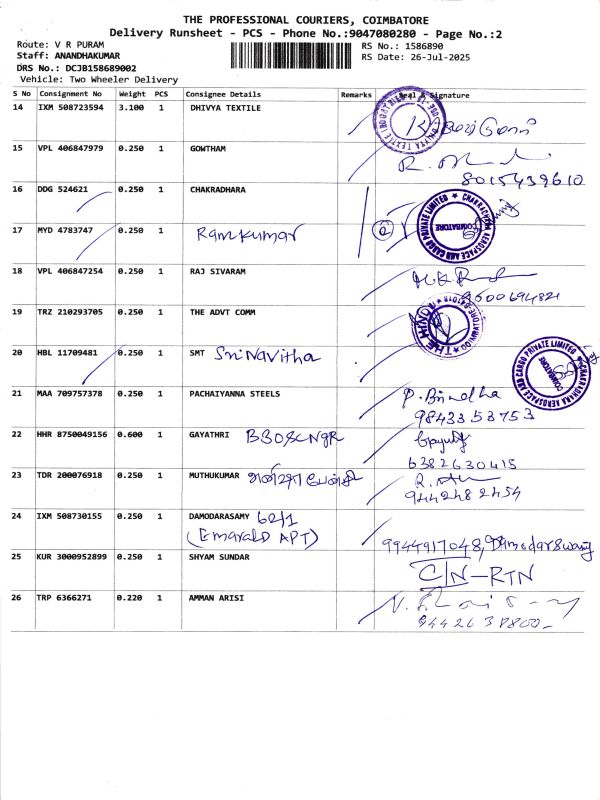 THE PROFESSIONAL COURIERS, COIMBATORE
Delivery Runsheet - PCS - Phone No.:9047080280 - Page No.:2
Route: V R PURAM
Staff: ANANDHAKUMAR
DRS No.: DCJB158689002
Vehicle: Two Wheeler Delivery
RS No.: 1586890
RS Date: 26-Jul-2025
S No Consignment No Weight PCS Consignee Details Remarks Seal & Signature
14 IXM 508723594 3.100 1 DHIVYA TEXTILE
15 VPL 406847979 0.250 1 GOWTHAM
8015439610
16 DDG 524621 0.250 1 CHAKRADHARA
CHAKRADHARA AEROSPACE AND CARGO PRIVATE LIMITED
COIMBATORE
17 MYD 4783747 0.250 1 Ramkumar
18 VPL 406847254 0.250 1 RAJ SIVARAM
19 TRZ 210293705 0.250 1 THE ADVT COMM
THE HINDU
20 HBL 11709481 0.250 1 SMT Sri Navitha
CHAKRADHARA AEROSPACE AND CARGO PRIVATE LIMITED
COIMBATORE
21 MAA 709757378 0.250 1 PACHAIYANNA STEELS P. Brindha
9843353753
22 HHR 8750049156 0.600 1 GAYATHRI
6382630415
23 TDR 200076918 0.250 1 MUTHUKUMAR
9442482454
24 IXM 508730155 0.250 1 DAMODARASAMY 62/1
(Emerald APT) 9944917048, Damodarswamy
25 KUR 3000952899 0.250 1 SHYAM SUNDAR C/N-RTN
26 TRP 6366271 0.220 1 AMMAN ARISI